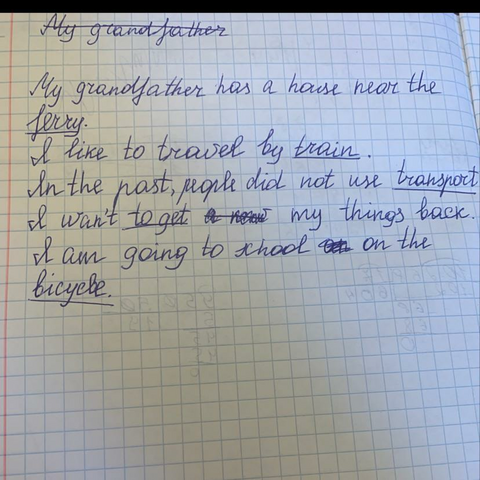 My grandfather
My grandfather has a house near the
ferry.
I like to travel by train.
In the past, people did not use transport
I wan't to get my things back.
I am going to school on the
bicycle.